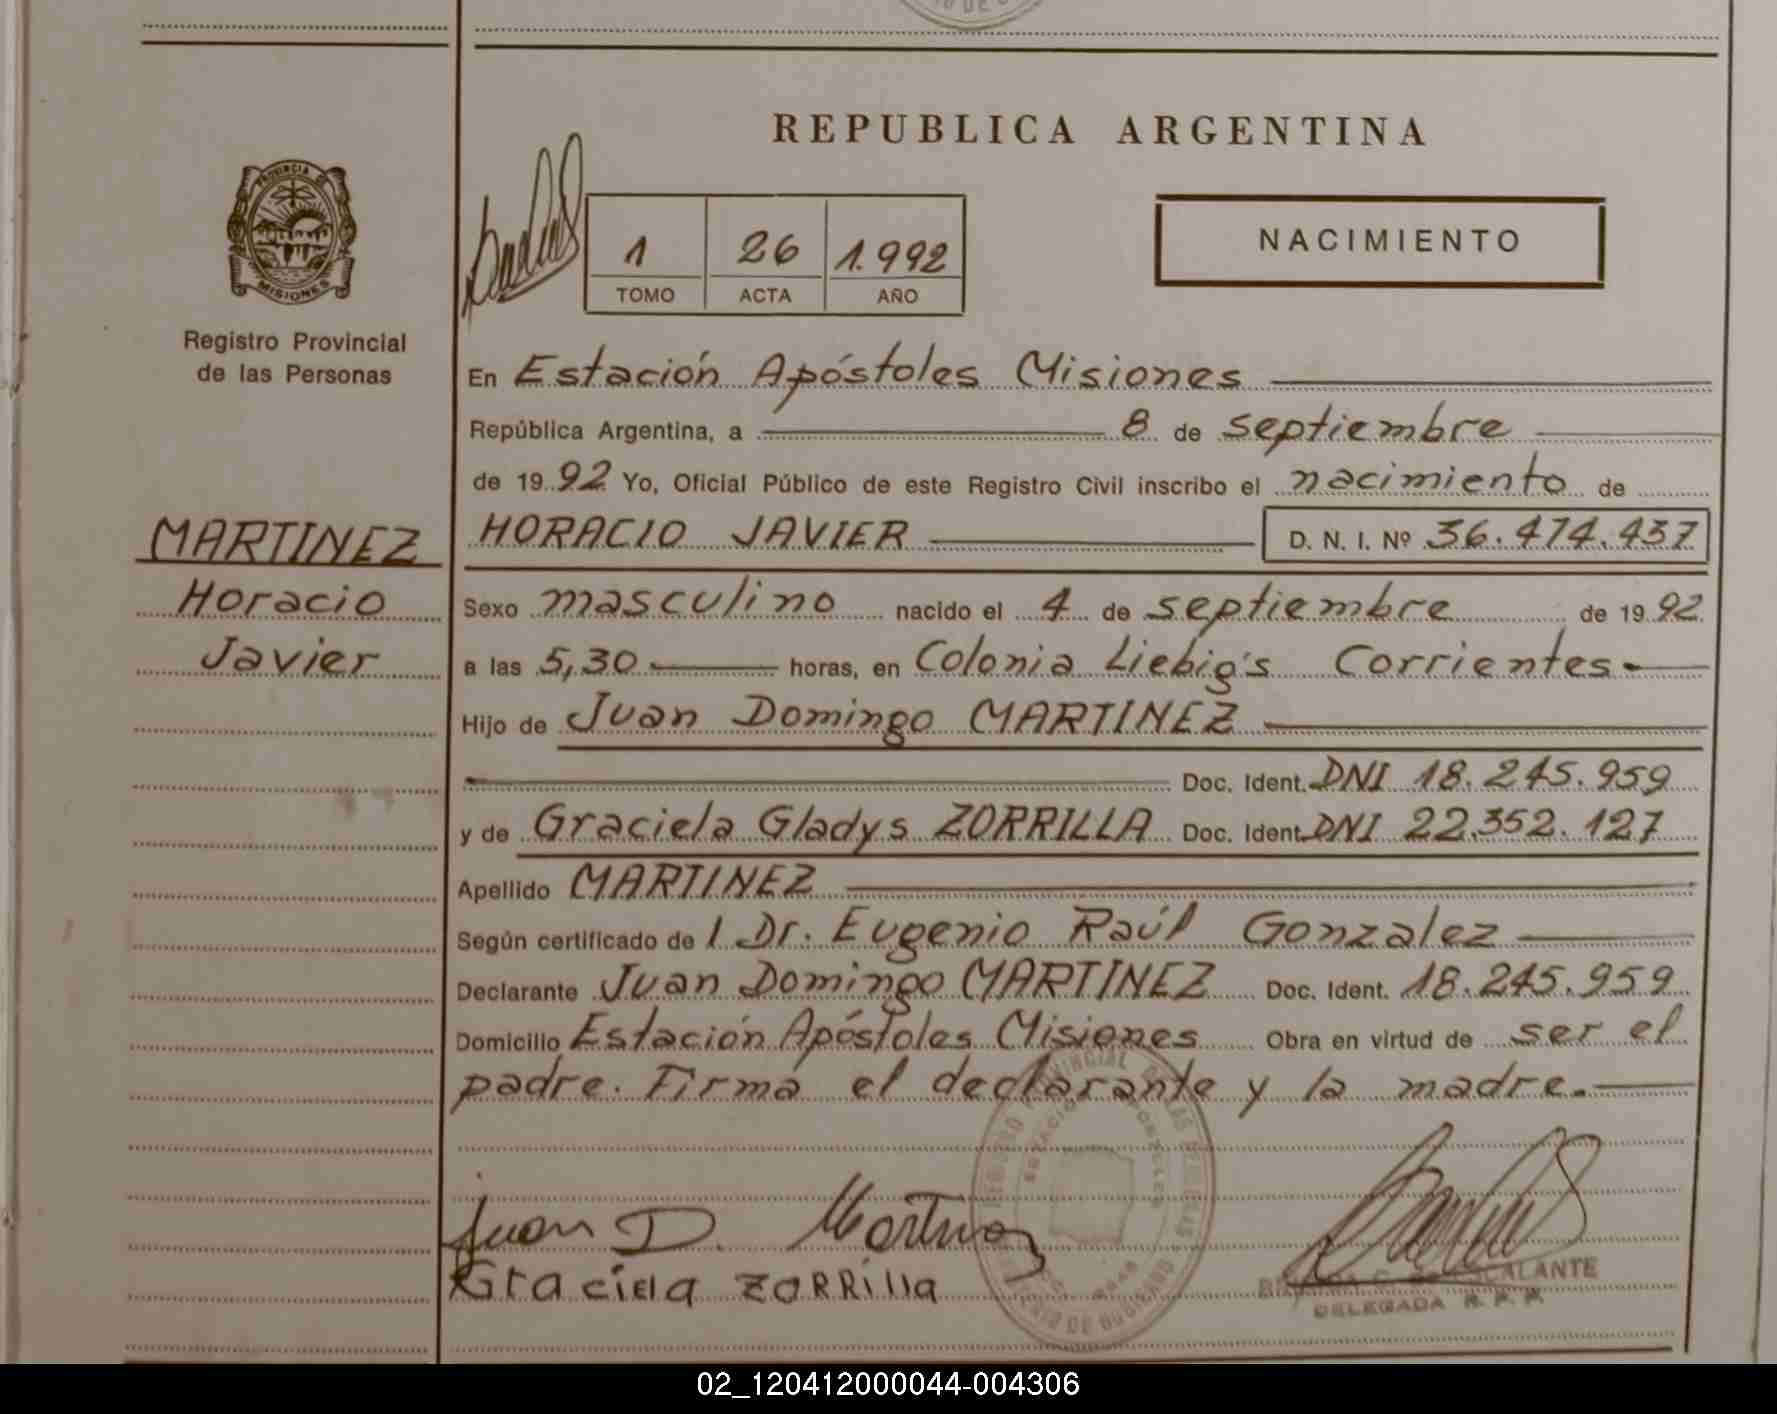 REPUBLICA ARGENTINA
PROVINCIA DE
MISIONES
Registro Provincial
de las Personas
1 26 1.992
TOMO ACTA AÑO
NACIMIENTO
En Estación Apóstoles Misiones
República Argentina, a 8 de septiembre
de 1992 Yo, Oficial Público de este Registro Civil inscribo el nacimiento de
MARTINEZ
Horacio
Javier
HORACIO JAVIER D. N. I. Nº 36.474.437
Sexo masculino nacido el 4 de septiembre de 1992
a las 5,30 horas, en Colonia Liebig's Corrientes-
Hijo de Juan Domingo MARTINEZ
Doc. Ident. DNI 18.245.959
y de Graciela Gladys ZORRILLA Doc. Ident. DNI 22.352.127
Apellido MARTINEZ
Según certificado de 1 Dr. Eugenio Raúl Gonzalez
Declarante Juan Domingo MARTINEZ Doc. Ident. 18.245.959
Domicilio Estación Apóstoles Misiones Obra en virtud de ser el
padre. Firma el declarante y la madre.-
Juan D. Martinez
Graciela ZORRilla
ESCALANTE
DELEGADA R. P. P.
REGISTRO PROVINCIAL DE LAS PERSONAS
ESTACION APOSTOLES
MINISTERIO DE GOBIERNO
02_120412000044-004306